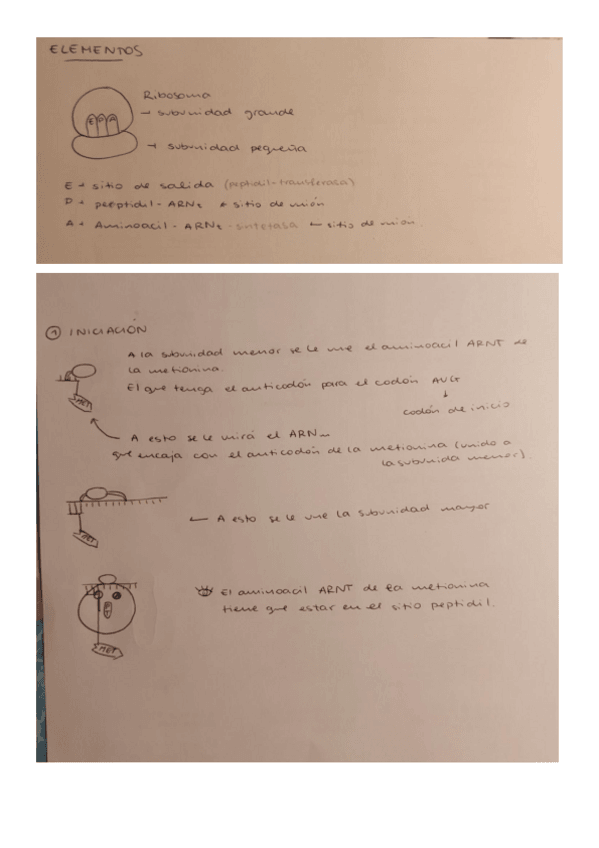 ELEMENTOS
Ribosoma
→ subunidad grande
E P A
→ subunidad pequeña
E → sitio de salida (peptidil-transferasa)
P → peeptidil - ARNt ← sitio de unión
A → Aminoacil - ARNt - sintetasa ← sitio de union.
① INICIACIÓN
A la subunidad menor se le une el aminoacil ARNT de
la metionina.
El que tenga el anticodón para el codón AUG
↓
codón de inicio
MET
A esto se le unirá el ARNm
que encaja con el anticodón de la metionina (unido a
la subunida menor)
← A esto se le une la subunidad mayor
MET
El aminoacil ARNT de la metionina
tiene que estar en el sitio peptidil.
MET